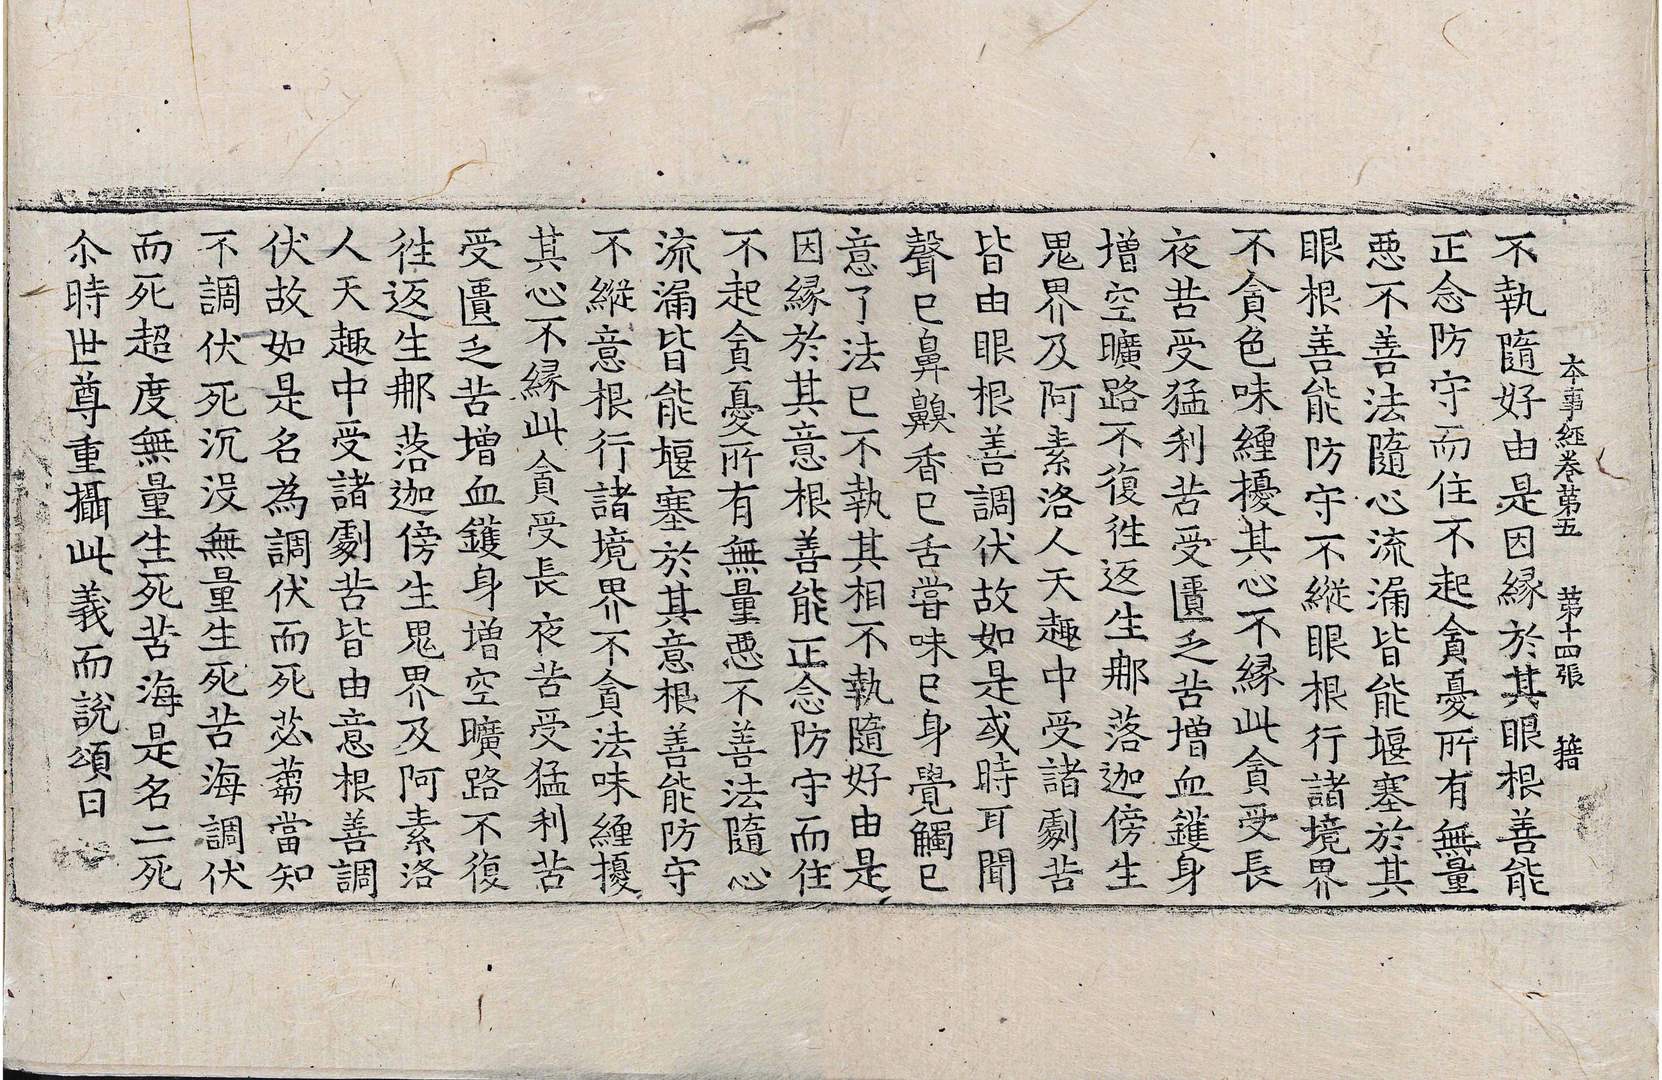 本事經卷第五　第十四張　籍
不執隨好由是因縁於其眼根善能
正念防守而住不起貪憂所有無量
惡不善法隨心流漏皆能堰塞於其
眼根善能防守不縱眼根行諸境界
不貪色味纏擾其心不縁此貪受長
夜苦受猛利苦受匱乏苦增血鑊身
增空曠路不復徃返生那落迦傍生
鬼界及阿素洛人天趣中受諸劇苦
皆由眼根善調伏故如是或時耳聞
聲已鼻齅香已舌甞味已身覺觸已
意了法已不執其相不執隨好由是
因縁於其意根善能正念防守而住
不起貪憂所有無量惡不善法隨心
流漏皆能堰塞於其意根善能防守
不縱意根行諸境界不貪法味纏擾
其心不縁此貪受長夜苦受猛利苦
受匱乏苦增血鑊身增空曠路不復
徃返生那落迦傍生鬼界及阿素洛
人天趣中受諸劇苦皆由意根善調
伏故如是名為調伏而死苾蒭當知
不調伏死沉没無量生死苦海調伏
而死超度無量生死苦海是名二死
尒時世尊重攝此義而說頌曰